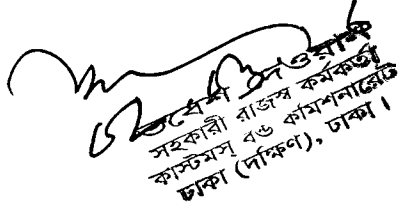 সহকারী রাজস্ব কর্মকর্তা
কাস্টমস্ বন্ড কমিশনারেট
ঢাকা (দক্ষিণ), ঢাকা।